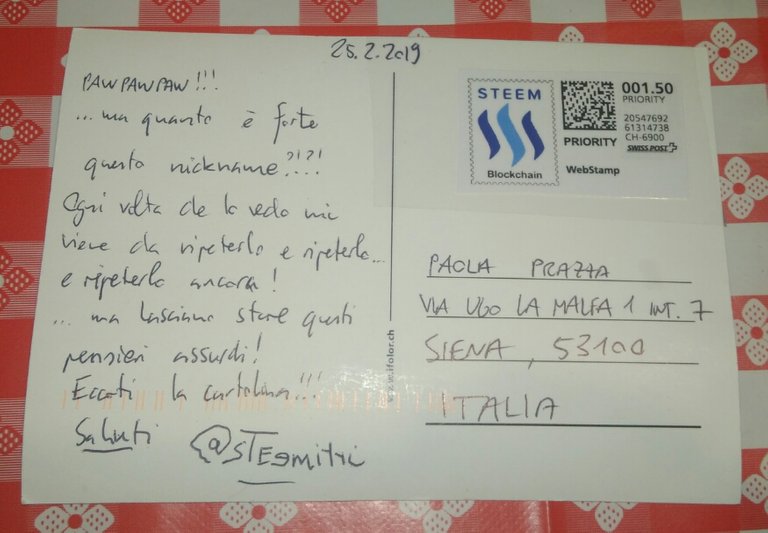 25.2.2019
PAWPAWPAW!!!
...ma quanto è forte
questo nickname?!?!
Ogni volta che lo vedo mi
viene da ripeterlo e ripeterlo...
e ripeterlo ancora!
... ma lasciamo stare questi
pensieri assurdi!
Eccoti la cartolina!!!
Saluti @STEEmitri
STEEM
Blockchain
PRIORITY
WebStamp
001.50
PRIORITY
20547692
61314738
CH-6900
SWISS POST
www.ifolor.ch
PAOLA PRAZZA
VIA UGO LA MALFA 1 INT. 7
SIENA, 53100
ITALIA